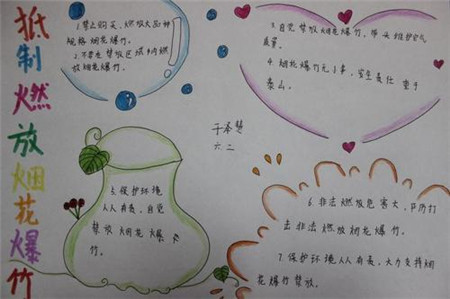 抵制燃放烟花爆竹
1.禁止购买、燃放大品种
规格烟花爆竹。
2.不要在禁放区域内燃
放烟花爆竹。
3.自觉禁放烟花爆竹，带头维护空气
质量。
4.烟花爆竹无小事，安全责任重于
泰山。
于泽慧
六二
5.保护环境
人人有责，自觉
禁放烟花爆
竹。
6.非法燃放危害大，严厉打
击非法燃放烟花爆竹。
7.保护环境人人有责，大力支持烟
花爆竹禁放。